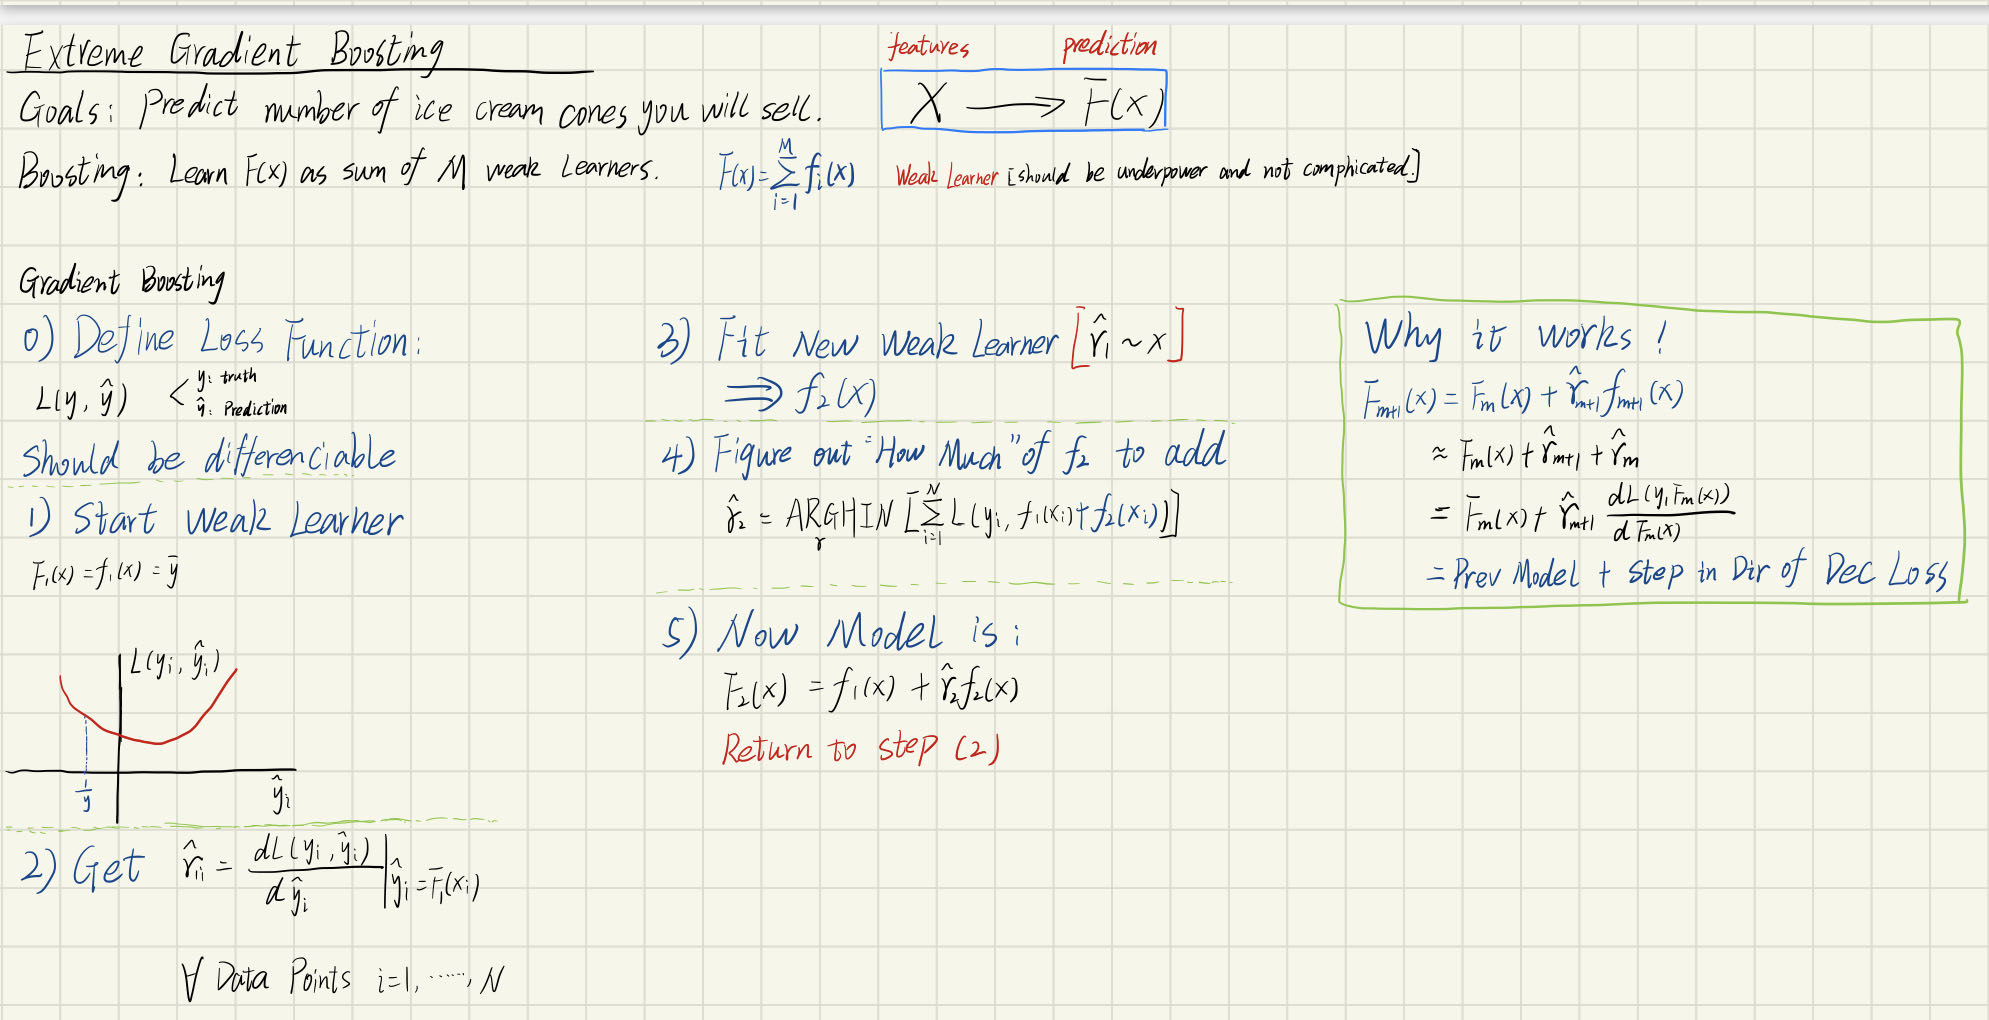 Extreme Gradient Boosting
features prediction
X ⟶ F(x)
Goals: Predict number of ice cream cones you will sell.
Boosting: Learn F(x) as sum of M weak Learners. F(x) = ∑_{i=1}^{M} f_i(x) Weak Learner [should be underpower and not comphicated.]
Gradient Boosting
0) Define Loss Function:
L(y, ŷ) < y: truth
ŷ: Prediction
Should be differenciable
1) Start Weak Learner
F₁(x) = f₁(x) = ȳ
L(yᵢ, ŷᵢ)
ȳ
ŷᵢ
2) Get r̂₁ᵢ = dL(yᵢ, ŷᵢ) / dŷᵢ | ŷᵢ = F₁(xᵢ)
∀ Data Points i=1, ......, N
3) Fit New Weak Learner [r̂₁ ~ x]
⟹ f₂(x)
4) Figure out "How Much" of f₂ to add
γ̂₂ = ARGHIN_γ [∑_{i=1}^{N} L(yᵢ, f₁(xᵢ) + f₂(xᵢ))]
5) Now Model is:
F₂(x) = f₁(x) + r̂₂f₂(x)
Return to step (2)
Why it works!
F_{m+1}(x) = F_m(x) + r̂_{m+1} f_{m+1}(x)
≈ F_m(x) + r̂_{m+1} + r̂_m
= F_m(x) + r̂_{m+1} dL(y, F_m(x)) / dF_m(x)
= Prev Model + step in Dir of Dec Loss